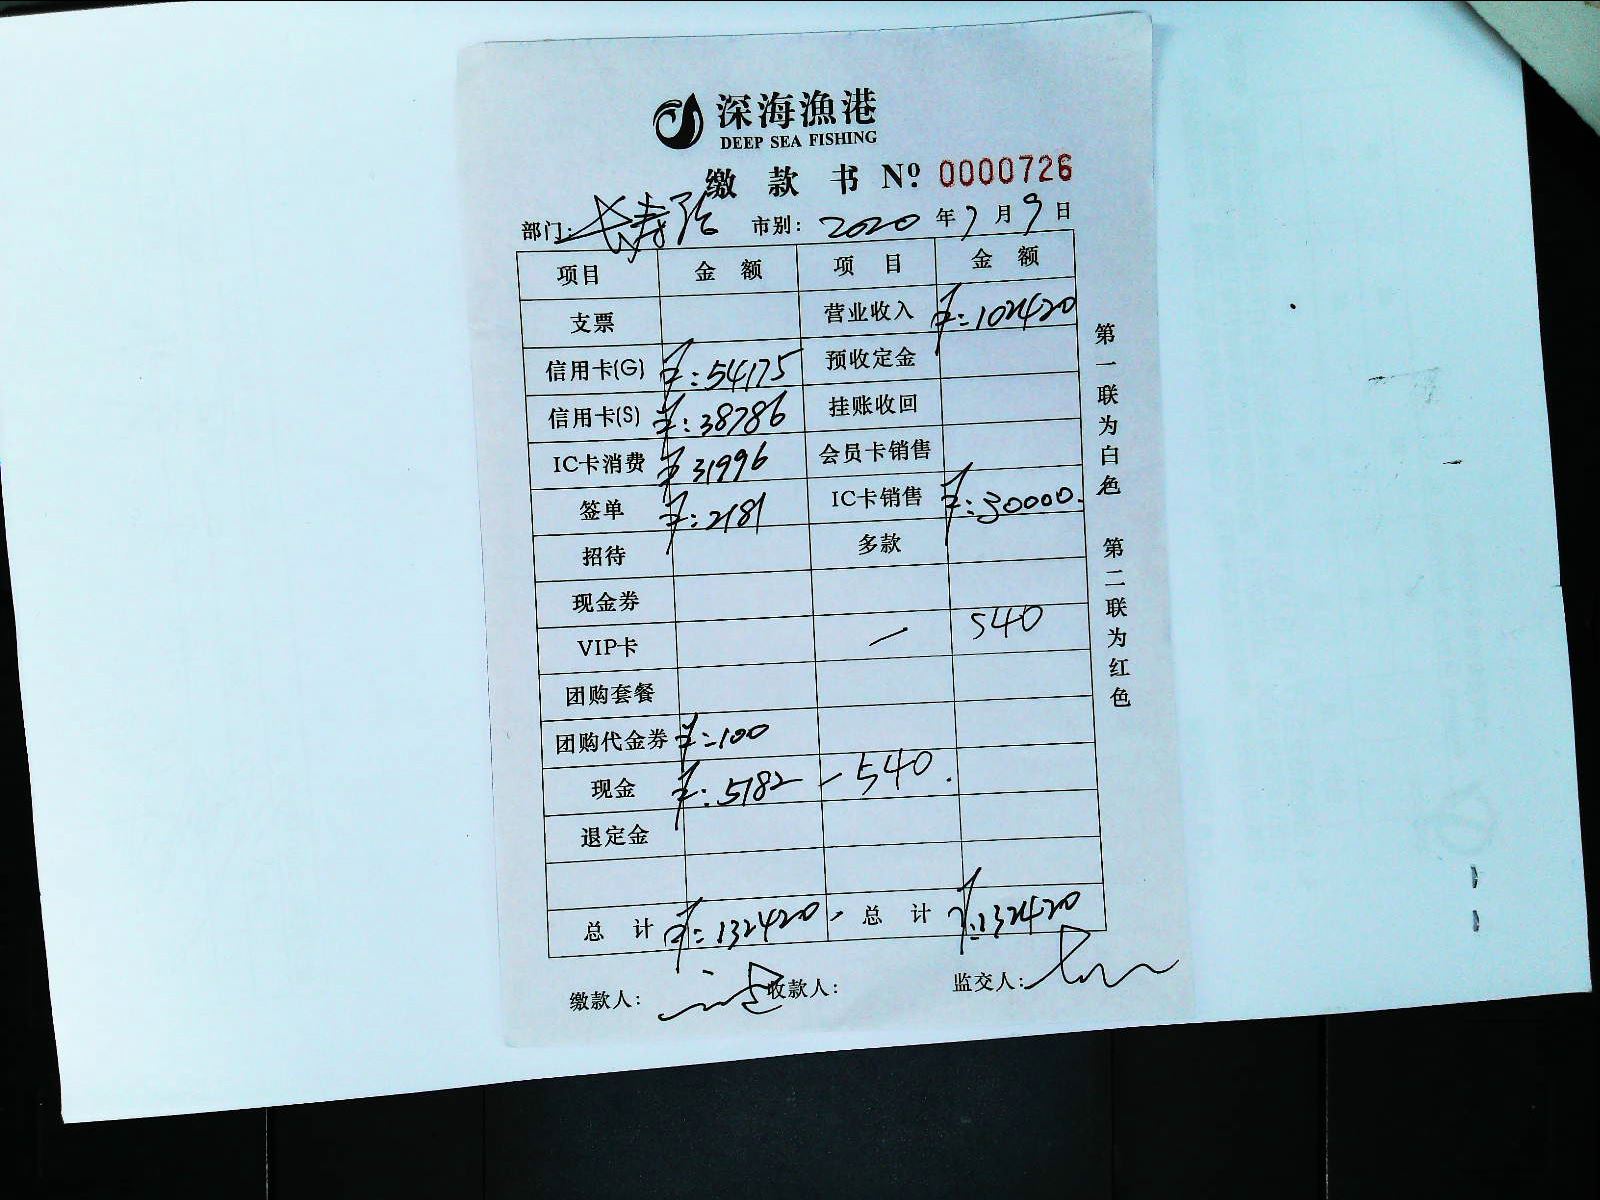 深海漁港
DEEP SEA FISHING
缴款书 Nº 0000726
部门: 长寿路 市别: 2020年7月9日
项目 金额 项目 金额
支票 营业收入 ¥:102420
信用卡(G) ¥:54175 预收定金
信用卡(S) ¥:38786 挂账收回
IC卡消费 ¥31996 会员卡销售
签单 ¥:2181 IC卡销售 ¥:30000.
招待 多款
现金券
VIP卡 — 540
团购套餐
团购代金券 ¥:100
现金 ¥:5182 -540.
退定金
总计 ¥:132420 总计 ¥:132420
缴款人: 收款人: 监交人:
第一联为白色 第二联为红色